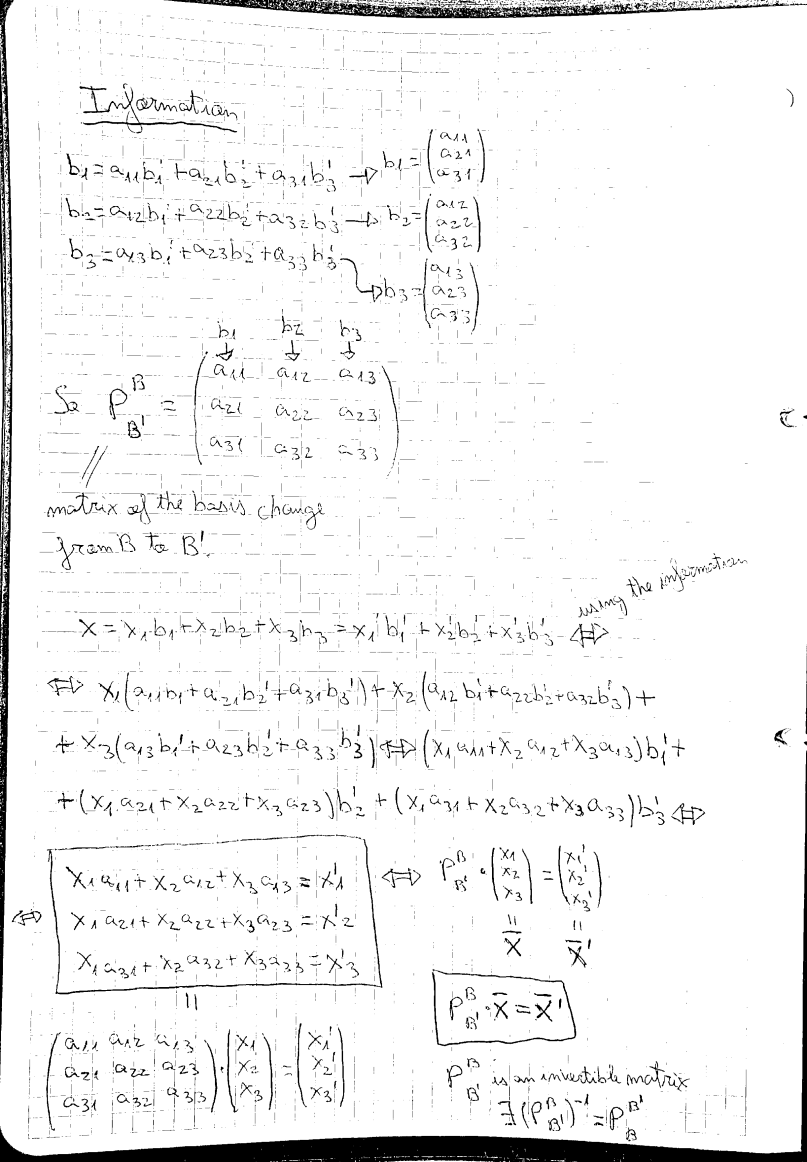 Information
b1 = a11b1' + a21b2' + a31b3' → b1 = (a11 a21 a31)
b2 = a12b1' + a22b2' + a32b3' → b2 = (a12 a22 a32)
b3 = a13b1' + a23b2' + a33b3' → b3 = (a13 a23 a33)
b1 b2 b3
↓ ↓ ↓
So P^B_B' = (a11 a12 a13
a21 a22 a23
a31 a32 a33)
//
matrix of the basis change
from B to B'.
using the information
X = x1b1 + x2b2 + x3b3 = x1'b1' + x2'b2' + x3'b3' ⇔
⇔ x1(a11b1 + a21b2' + a31b3') + x2(a12b1' + a22b2' + a32b3') +
+ x3(a13b1' + a23b2' + a33b3') ⇔ (x1a11 + x2a12 + x3a13)b1' +
+ (x1a21 + x2a22 + x3a23)b2' + (x1a31 + x2a32 + x3a33)b3' ⇔
⇔ x1a11 + x2a12 + x3a13 = x'1
x1a21 + x2a22 + x3a23 = x'2
x1a31 + x2a32 + x3a33 = x'3
⇔ P^B_B' · (x1 x2 x3) = (x1' x2' x3')
= =
X̄ X̄'
=
(a11 a12 a13
a21 a22 a23
a31 a32 a33) · (x1 x2 x3) = (x1' x2' x3')
P^B_B' · X̄ = X̄'
P^B_B' is an invertible matrix
∃ (P^B_B')^-1 = P^B'_B